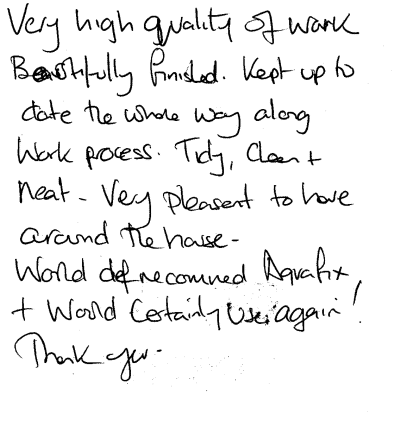 Very high quality of work
Beautifully finished. Kept up to
date the whole way along
work process. Tidy, Clean +
neat - Very pleasent to have
around the house -
Would def recommed Aquafix
+ Would Certainly Use again!
Thank you -